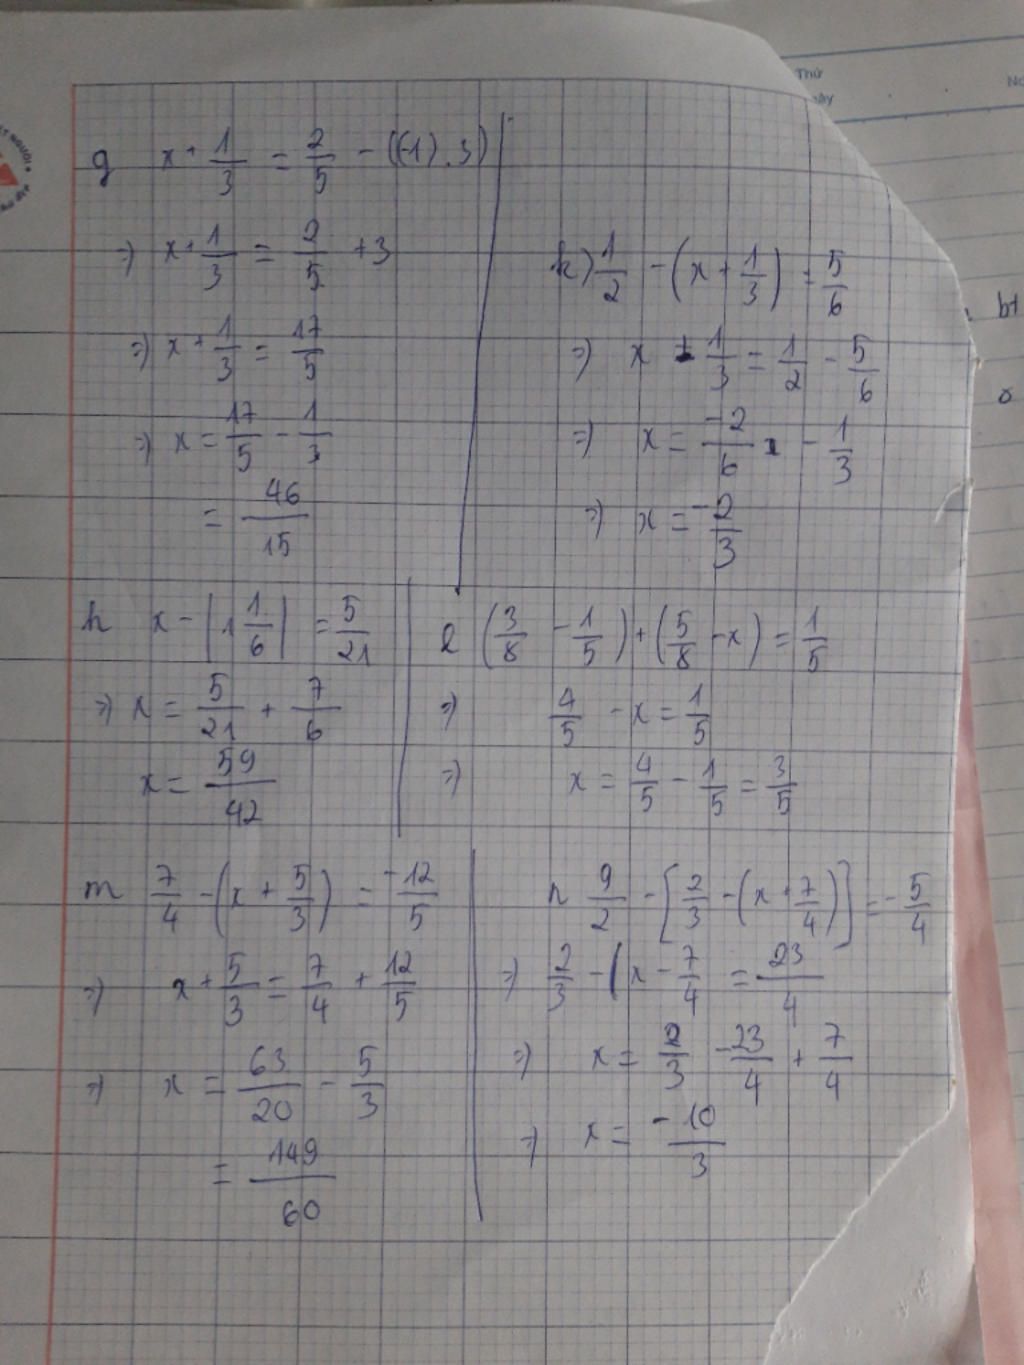 g x + 1/3 = 2/5 - ((-1).3)
=> x + 1/3 = 2/5 + 3
=> x + 1/3 = 17/5
=> x = 17/5 - 1/3
= 46/15
k) 1/2 - (x + 1/3) = 5/6
=> x + 1/3 = 1/2 - 5/6
=> x = -2/6 - 1/3
=> x = -2/3
h x - |1 1/6| = 5/21
=> x = 5/21 + 7/6
x = 59/42
l (3/8 - 1/5) + (5/8 - x) = 1/5
=> 4/5 - x = 1/5
=> x = 4/5 - 1/5 = 3/5
m 7/4 - (x + 5/3) = -12/5
=> x + 5/3 = 7/4 + 12/5
=> x = 63/20 - 5/3
= 149/60
n 9/2 - [2/3 - (x + 7/4)] = -5/4
=> 2/3 - (x - 7/4 = 23/4
=> x = 2/3 - 23/4 + 7/4
=> x = -10/3
Thứ
bt